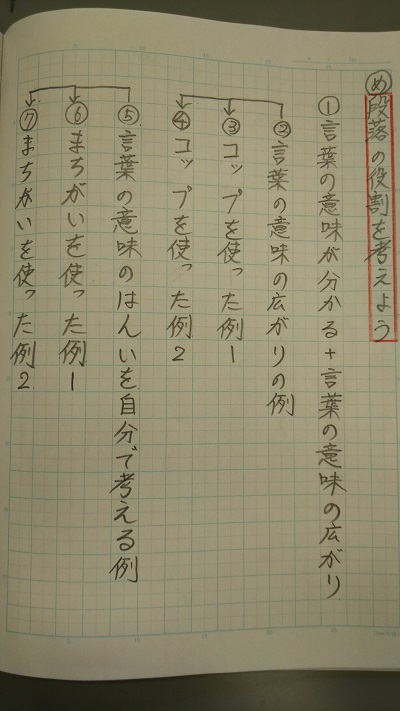 め段落の役割を考えよう
①言葉の意味が分かる+言葉の意味の広がり
②言葉の意味の広がりの例
③コップを使った例1
④コップを使った例2
⑤言葉の意味のはんいを自分で考える例
⑥まちがいを使った例1
⑦まちがいを使った例2